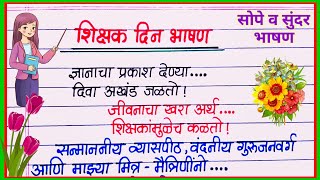 शिक्षक दिन भाषण
सोपे व सुंदर
भाषण
ज्ञानाचा प्रकाश देण्या....
दिवा अखंड जळतो!
जीवनाचा खरा अर्थ...
शिक्षकांमुळेच कळतो!
सन्माननीय व्यासपीठ, वंदनीय गुरुजनवर्ग
आणि माझ्या मित्र - मैत्रिणींनो....